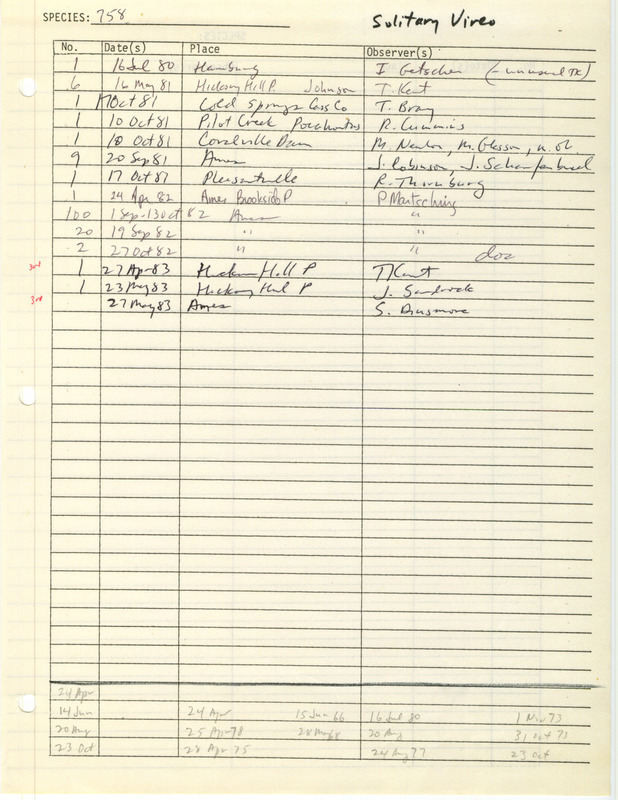 SPECIES: 758 Solitary Vireo
No. Date(s) Place Observer(s)
1 16 Jul 80 Hamburg I Getscher (-unusual TK)
6 16 May 81 Hickory Hill P. Johnson T. Kent
1 7 Oct 81 Cold Springs Cass Co T. Bray
1 10 Oct 81 Pilot Creek Pocahontas R. Cummins
1 10 Oct 81 Coralville Dam M. Newlon, M. Glesson, n. ob.
9 20 Sep 81 Ames J. Robinson, J. Schaufenbuel
1 17 Oct 81 Pleasantville R. Thornburg
1 24 Apr 82 Ames Brookside P P Martsching
100 1 Sep-13 Oct 82 Ames "
20 19 Sep 82 " "
2 27 Oct 82 " " doc
3rd 1 27 Apr 83 Hickory Hill P T Kent
1 23 May 83 Hickory Hill P J. Sandrock
3rd 27 May 83 Ames S. Dinsmore
24 Apr
14 Jun 24 Apr 15 Jun 66 16 Jul 80 1 Nov 73
20 Aug 25 Apr 78 28 May 68 20 Aug 31 Oct 73
23 Oct 28 Apr 75 24 Aug 77 23 Oct